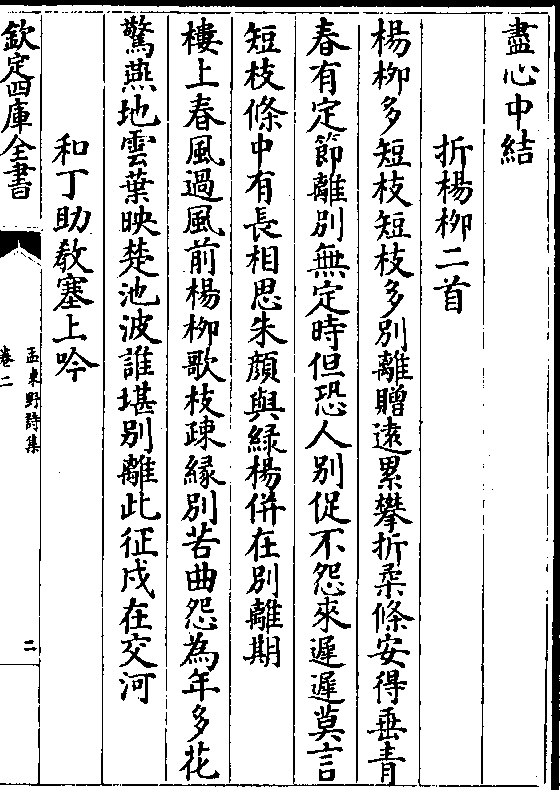 盡心中結
折楊柳二首
楊柳多短枝短枝多別離贈遠累攀折柔條安得垂青
春有定節離別無定時但恐人別促不怨來遲遲莫言
短枝條中有長相思朱顔與緑楊併在別離期
樓上春風過風前楊柳歌枝疎緣別苦曲怨為年多花
驚燕地雲葉映楚池波誰堪別離此征戍在交河
和丁助敎塞上吟
欽定四庫全書
孟東野詩集
卷二
二